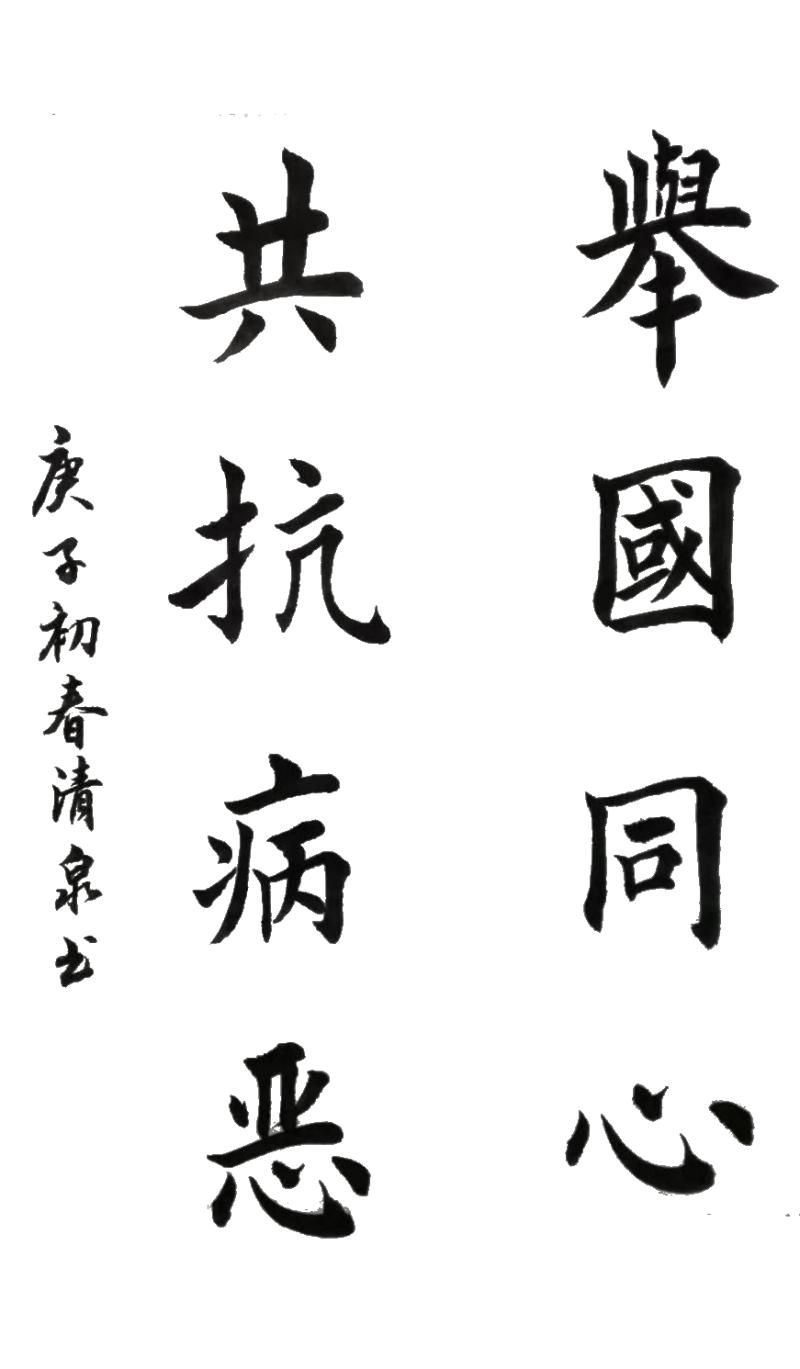 舉國同心
共抗病恶
庚子初春清泉书